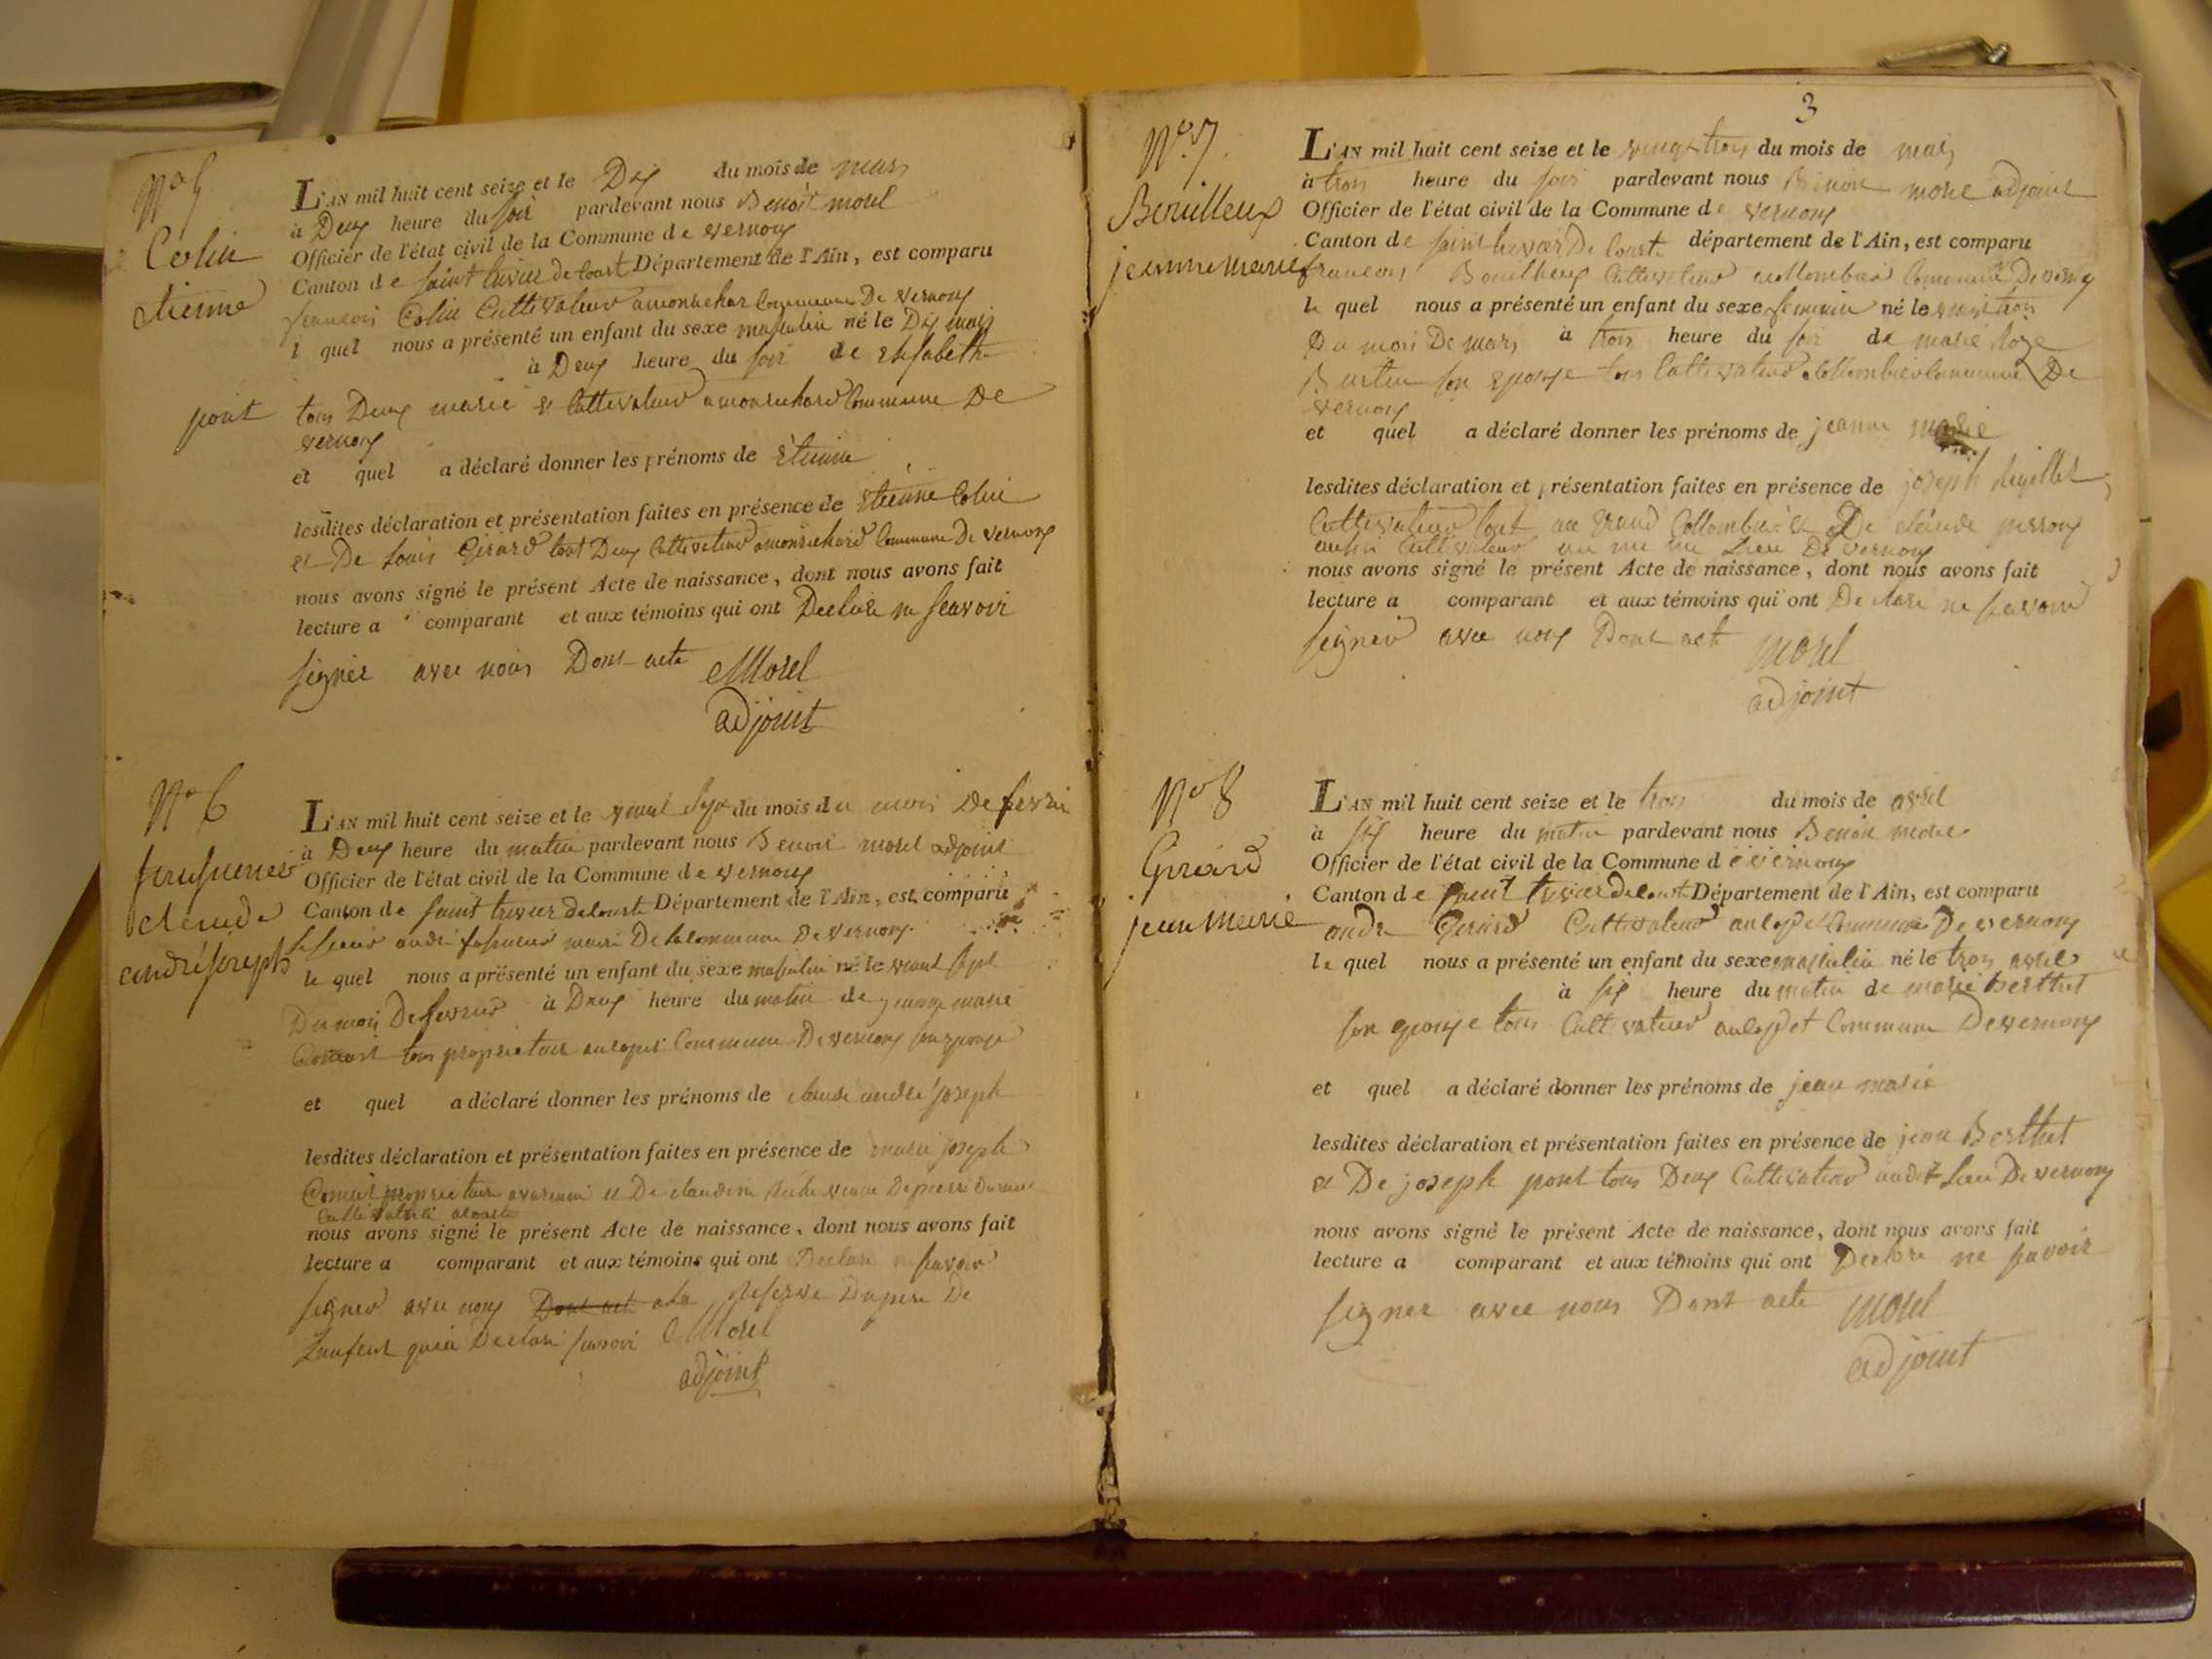 No 5
Colin
etienne
L'AN mil huit cent seize et le Dix du mois de mars
à Deux heure du soir pardevant nous Benoit morel
Officier de l'état civil de la Commune de vernoux
Canton de saint trivier de Court Département de l'Ain, est comparu
francois Colin Cultivateur a monrichar Commune De vernoux
l quel nous a présenté un enfant du sexe masculin né le Dix mars
à Deux heure du soir de Elisabeth
pont tous Deux marié et Cultivateur a monrichard Commune De
vernoux
et quel a déclaré donner les prénoms de Etienne
lesdites déclaration et présentation faites en présence de Etienne Colin
et De Louis Girard tout Deux Cultivateur a monrichard Commune De vernoux
nous avons signé le présent Acte de naissance, dont nous avons fait
lecture a comparant et aux témoins qui ont Declaré ne scavoir
signer avec nous Dont acte Morel
adjoint
No 6
claude
andré joseph
L'AN mil huit cent seize et le vint sept du mois du mois De fevrie
à Deux heure du matin pardevant nous Benoit morel adjoint
Officier de l'état civil de la Commune de vernoux
Canton de saint trivier de Court Département de l'Ain, est comparu
le sieur andré maire De la commune De vernoux
le quel nous a présenté un enfant du sexe masculin né le vint sept
Du mois De fevrier à Deux heure du matin de jeanne marie
tous proprietaire Commune De vernoux son epouse
et quel a déclaré donner les prénoms de claude andré joseph
lesdites déclaration et présentation faites en présence de marie joseph
proprietaire et De claudine veuve De pierre
Cultivatrice
nous avons signé le présent Acte de naissance, dont nous avons fait
lecture a comparant et aux témoins qui ont Declaré ne scavoir
signer avec nous Dont acte a la reserve Du pere De
Lenfent qui a Declaré scavoir Morel
adjoint
3
No 7
Bouilleux
jeanne marie
L'AN mil huit cent seize et le vingt trois du mois de mars
à trois heure du soir pardevant nous Benoit morel adjoint
Officier de l'état civil de la Commune de vernoux
Canton de saint trivier De Court département de l'Ain, est comparu
francois Cultivateur au Collombier Commune De vernoux
le quel nous a présenté un enfant du sexe feminin né le vingt trois
Du mois De mars à trois heure du soir de marie
son Epouse tous Cultivateur Collombier Commune De
vernoux
et quel a déclaré donner les prénoms de jeanne marie
lesdites déclaration et présentation faites en présence de joseph
Cultivateur tout au Grand Collombier et De claude perroux
aussi Cultivateur au me me Lieu De vernoux
nous avons signé le présent Acte de naissance, dont nous avons fait
lecture a comparant et aux témoins qui ont Declaré ne scavoir
signer avec nous Dont act morel
adjoint
No 8
Girard
jean Marie
L'AN mil huit cent seize et le trois du mois de avril
à six heure du matin pardevant nous Benoit morel
Officier de l'état civil de la Commune de vernoux
Canton de saint trivier de Court Département de l'Ain, est comparu
andre Girard Cultivateur Commune De vernoux
le quel nous a présenté un enfant du sexe masculin né le trois avril
à six heure du matin de marie Berthet
son epouse tous Cultivateur Commune De vernoux
et quel a déclaré donner les prénoms de jean marie
lesdites déclaration et présentation faites en présence de jean Berthet
et De joseph pont tous Deux Cultivateur audit Lieu De vernoux
nous avons signé le présent Acte de naissance, dont nous avons fait
lecture a comparant et aux témoins qui ont Declaré ne savoir
signer avec nous Dont acte morel
adjoint